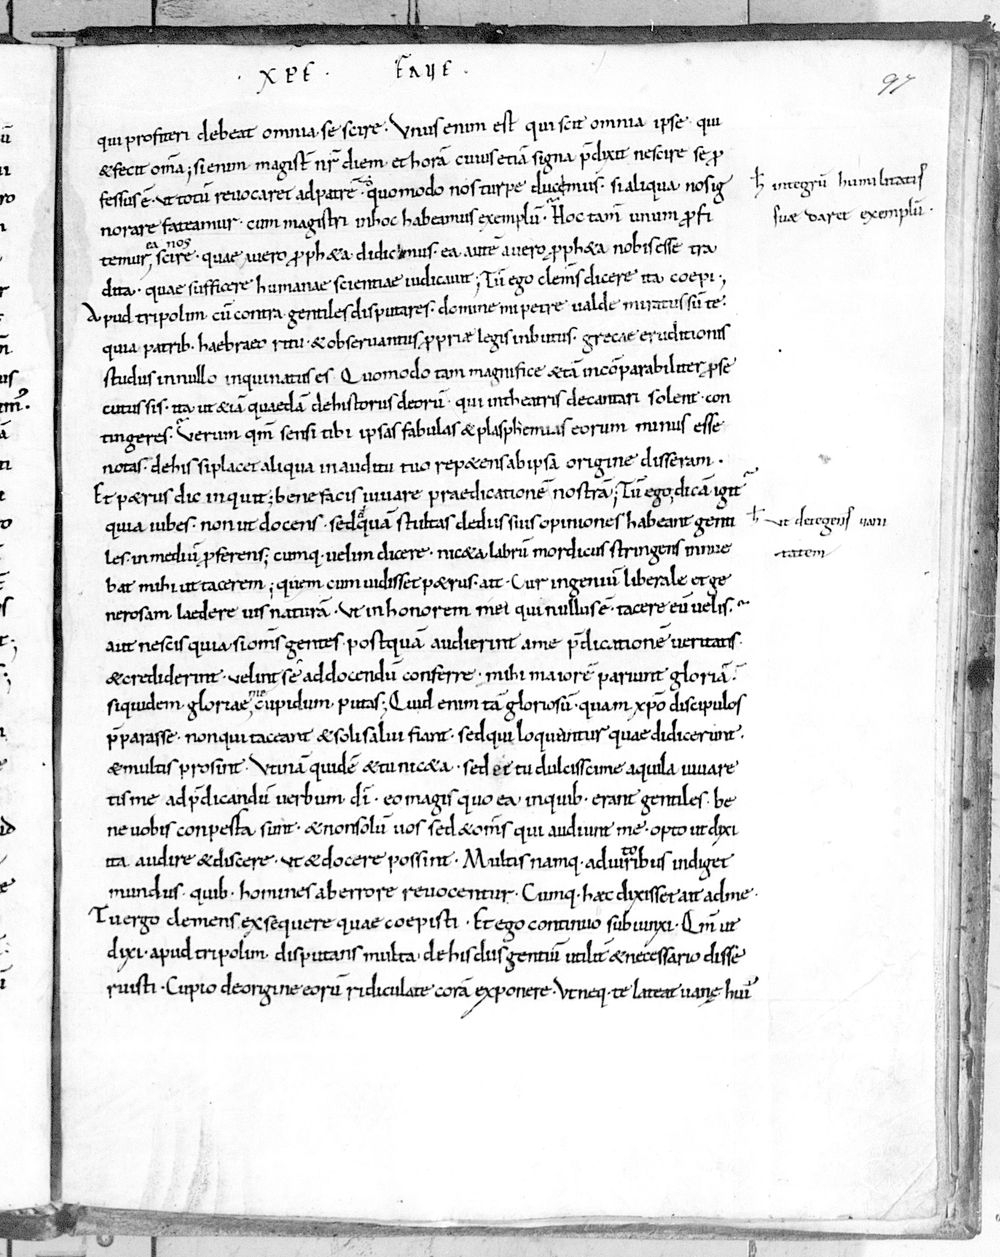 · XPE · FAVE ·
97
qui profiteri debeat omnia se scire · Unus enim est qui scit omnia ipse · qui
& fecit om̄a ; si enim magist̄ nr̄ diem · et horā cuius etiā signa p̄dixit nescire se p̱
fessus ē · ut totū revocaret ad patrē · quomodo nos turpe ducimus · si aliqua nos ig
norare fateamur · cum magistri in hoc habeamus exemplū · Hoc tam̄ unum p̱fi
ea nos
temur, scire · quae a vero p̱ph&a didicimus · ea autē a vero p̱ph&a nobis esse tra
dita · quae sufficere humanae scientiae iudicavit ; Tū ego clem̄s dicere ita coepi ·,
Apud tripolim cū contra gentiles disputares · domine mi petre valde miratus sū te ·
quia patrib · haebraeo ritu · & observantiis p̱priae legis inbutus · grecae eruditionis
studiis in nullo inquinatus es Quomodo tam magnifice & tā incōparabiliter p̱se
cutus sis · ita ut &iā quaedā de historiis deorū · qui in theatris decantari solent · con
tingeres · Verum qm̄ sensi tibi ipsas fabulas & plasphemias eorum minus esse
notas · de his si placet aliqua in auditu tuo rep&ens ab ipsa origine disseram ·
Et p&rus dic inquit ; bene facis iuvare praedicationē nostrā ; Tū ego, dicā igit̄
quia iubes · non ut docens · sed quā stultas de diis suis opiniones habeant genti
les · in mediū p̱ferens ; cumq · velim dicere · nic&a labrū mordicus stringens innue
bat mihi ut tacerem ; quem cum vidisset p&rus · ait · Cur ingeniū liberale et ge
nerosam laedere vis naturā · Ut in honorem mei qui nullus ē · tacere eū velis ·
aut nescis quia si om̄s gentes · postquā audierint a me p̄dicationē veritatis ·
& crediderint · velint se ad docendū conferre · mihi maiorē pariunt gloriā ·
me
siquidem gloriae, cupidum putas ; Quid enim tā gloriosū · quam xp̄o discipulos
p̄parasse · non qui taceant & soli salvi fiant · sed qui loquantur quae didicerint ·
& multis prosint · Utinā quidē & tu nic&a · sed et tu dulcissime aquila iuvare
tis me ad p̄dicandū verbum · dī · eo magis quo ea in quib · erant gentiles · be
ne vobis conpesta sunt · & non solū vos sed & om̄s qui audiunt me · opto ut dixi
ita audire & discere · ut & docere possint · Multis namq · adiutoribus indiget
mundus · quib · homines ab errore revocentur · Cumq · haec dixisset ait ad me ·
Tu ergo clemens exsequere quae coepisti · Et ego continuo subiunxi · Qm̄ ut
dixi · apud tripolim · disputans multa · de his diis gentiū utilit̄ & necessario disse
ruisti · Cupio de origine eorū ridicula te corā exponere · Ut neq · te lateat vanę hui᾽
ħ integrū humilitatis
suae daret exemplū ·
ħ ut detegens vani
tatem